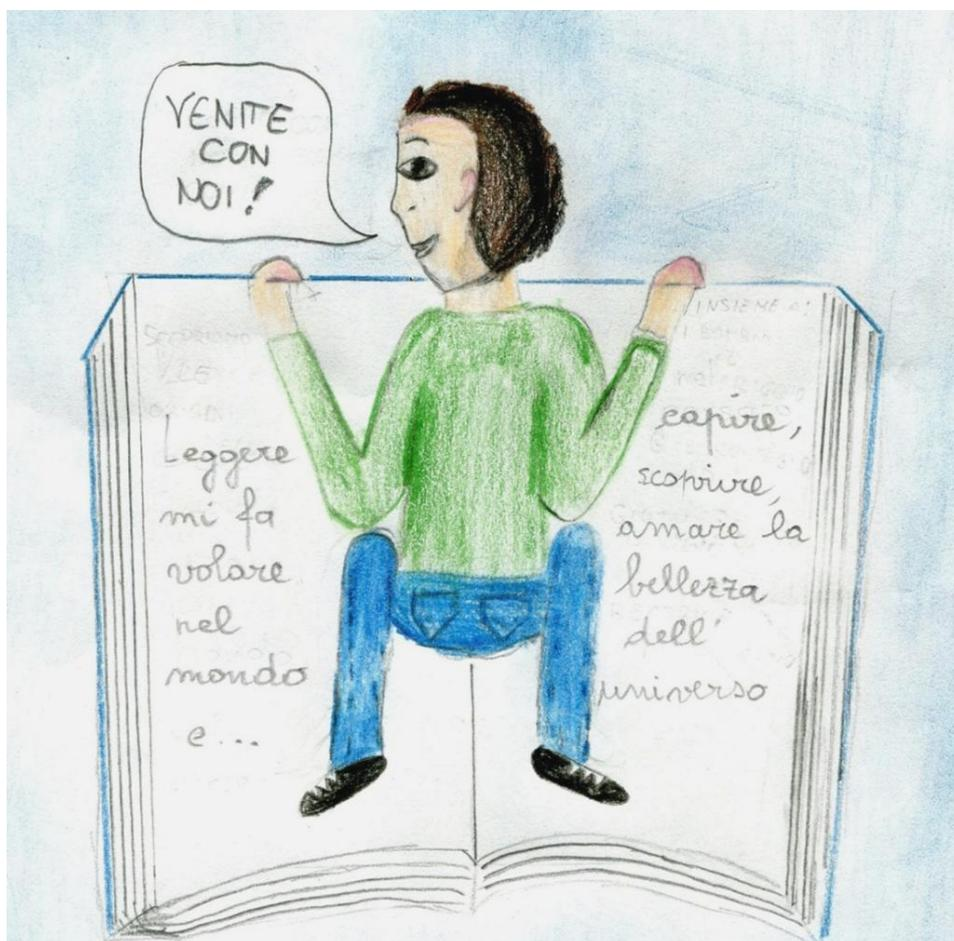 VENITE
CON
NOI!
Leggere
mi fa
volare
nel
mondo
e...
INSIEME A
capire,
scoprire,
amare la
bellezza
dell'
universo